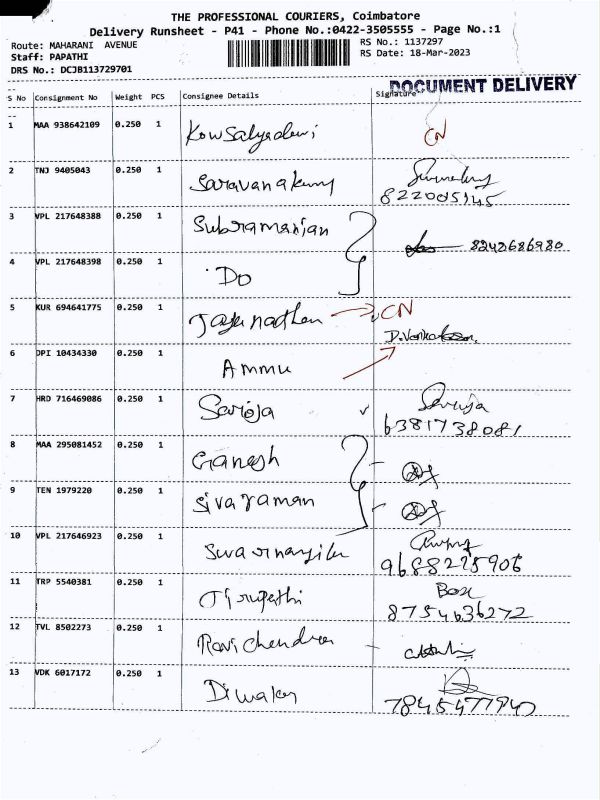 THE PROFESSIONAL COURIERS, Coimbatore
Delivery Runsheet - P41 - Phone No.:0422-3505555 - Page No.:1
Route: MAHARANI AVENUE
Staff: PAPATHI
DRS No.: DCJB113729701
RS No.: 1137297
RS Date: 18-Mar-2023
DOCUMENT DELIVERY
S No Consignment No Weight PCS Consignee Details Signature
1 MAA 938642109 0.250 1 Kowsalyadevi CN
2 TNJ 9405043 0.250 1 Saravanakumar
3 VPL 217648388 0.250 1 Subramanian 8242686980
4 VPL 217648398 0.250 1 Do
5 KUR 694641775 0.250 1 CN
6 DPI 10434330 0.250 1 Ammu
7 HRD 716469086 0.250 1 Saroja Saroja
6381738081
8 MAA 295081452 0.250 1 Ganesh
9 TEN 1979220 0.250 1 Sivaraman
10 VPL 217646923 0.250 1
9688215906
11 TRP 5540381 0.250 1 Tirupathi Box
8754636272
12 TVL 8502273 0.250 1 Ravi Chendran
13 VDK 6017172 0.250 1 Diwakar